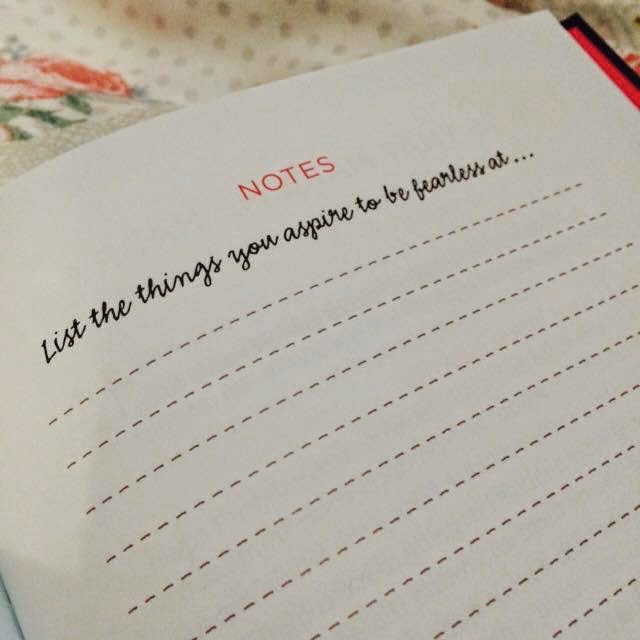 NOTES
List the things you aspire to be fearless at...